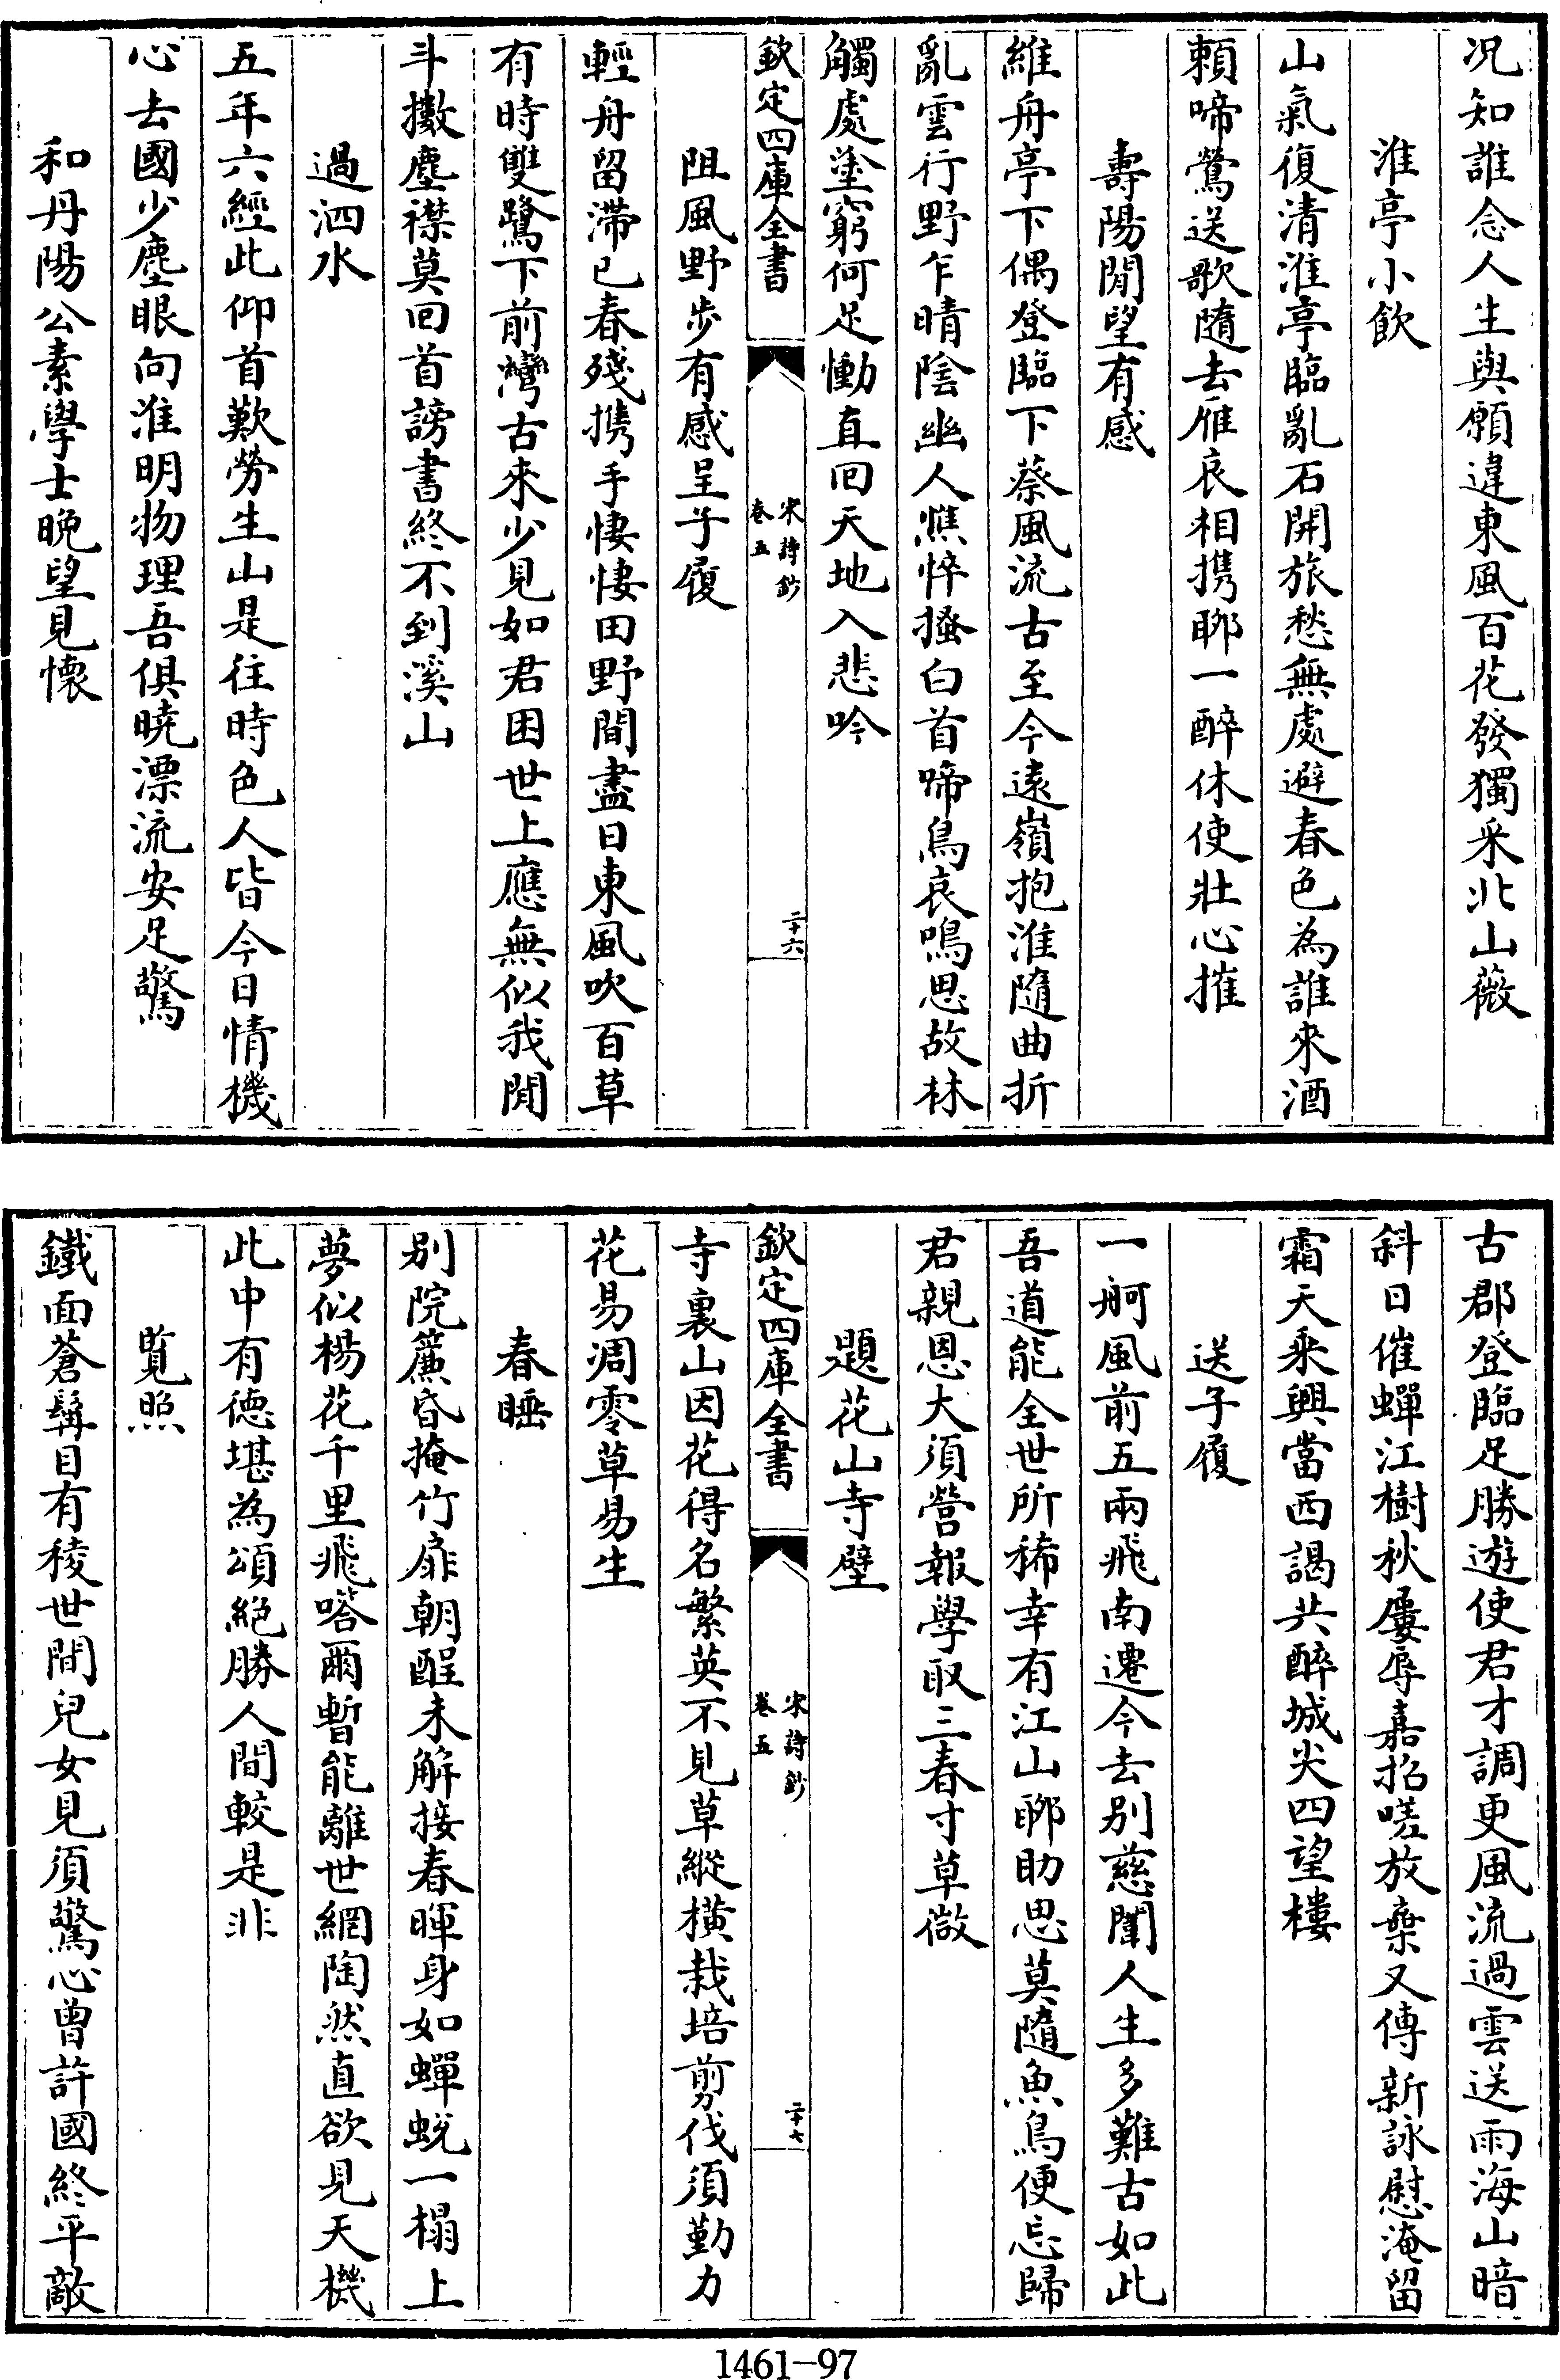 况知誰念人生與願違東風百花發獨采北山薇
淮亭小飲
山氣復清淮亭臨亂石開旅愁無處避春色為誰來酒
頼啼鶯送歌隨去雁哀相携聊一醉休使壯心摧
壽陽閒望有感
維舟亭下偶登臨下蔡風流古至今遠嶺抱淮隨曲折
亂雲行野乍晴陰幽人憔悴搔白首啼鳥哀鳴思故林
觸處塗窮何足慟直回天地入悲吟
欽定四庫全書
宋詩鈔
卷五
二十六
阻風野步有感呈子履
輕舟留滯已春殘携手悽悽田野間盡日東風吹百草
有時雙鷺下前灣古來少見如君困世上應無似我閒
斗擻塵襟莫回首謗書終不到溪山
過泗水
五年六經此仰首歎勞生山是往時色人皆今日情機
心去國少塵眼向淮明物理吾俱曉漂流安足驚
和丹陽公素學士晚望見懷
古郡登臨足勝遊使君才調更風流過雲送雨海山暗
斜日催蟬江樹秋屢辱嘉招嗟放棄又傳新詠慰淹留
霜天乘興當西謁共醉城尖四望樓
送子履
一舸風前五兩飛南遷今去别慈闈人生多難古如此
吾道能全世所稀幸有江山聊助思莫隨魚鳥便忘歸
君親恩大須營報學取三春寸草微
題花山寺壁
欽定四庫全書
宋詩鈔
卷五
二十七
寺裏山因花得名繁英不見草縱橫栽培剪伐須勤力
花易凋零草易生
春睡
别院簾昏掩竹扉朝酲未解接春暉身如蟬蛻一榻上
夢似楊花千里飛嗒爾暫能離世網陶然直欲見天機
此中有德堪為頌絶勝人間較是非
覧照
鐵面蒼髯目有稜世間兒女見須驚心曾許國終平敵
1461—97